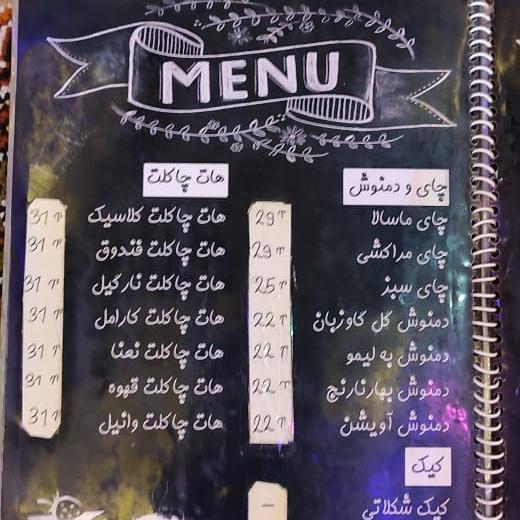 MENU
چای و دمنوش
چای ماسالا 29 ت
چای مراکشی 29 ت
چای سبز 25 ت
دمنوش گل گاوزبان 22 ت
دمنوش به لیمو 22 ت
دمنوش بهارنارنج 22 ت
دمنوش آویشن 22 ت
کیک
کیک شکلاتی -
هات چاکلت
هات چاکلت کلاسیک 31 ت
هات چاکلت فندوق 31 ت
هات چاکلت نارگیل 31 ت
هات چاکلت کارامل 31 ت
هات چاکلت نعنا 31 ت
هات چاکلت قهوه 31 ت
هات چاکلت وانیل 31 ت